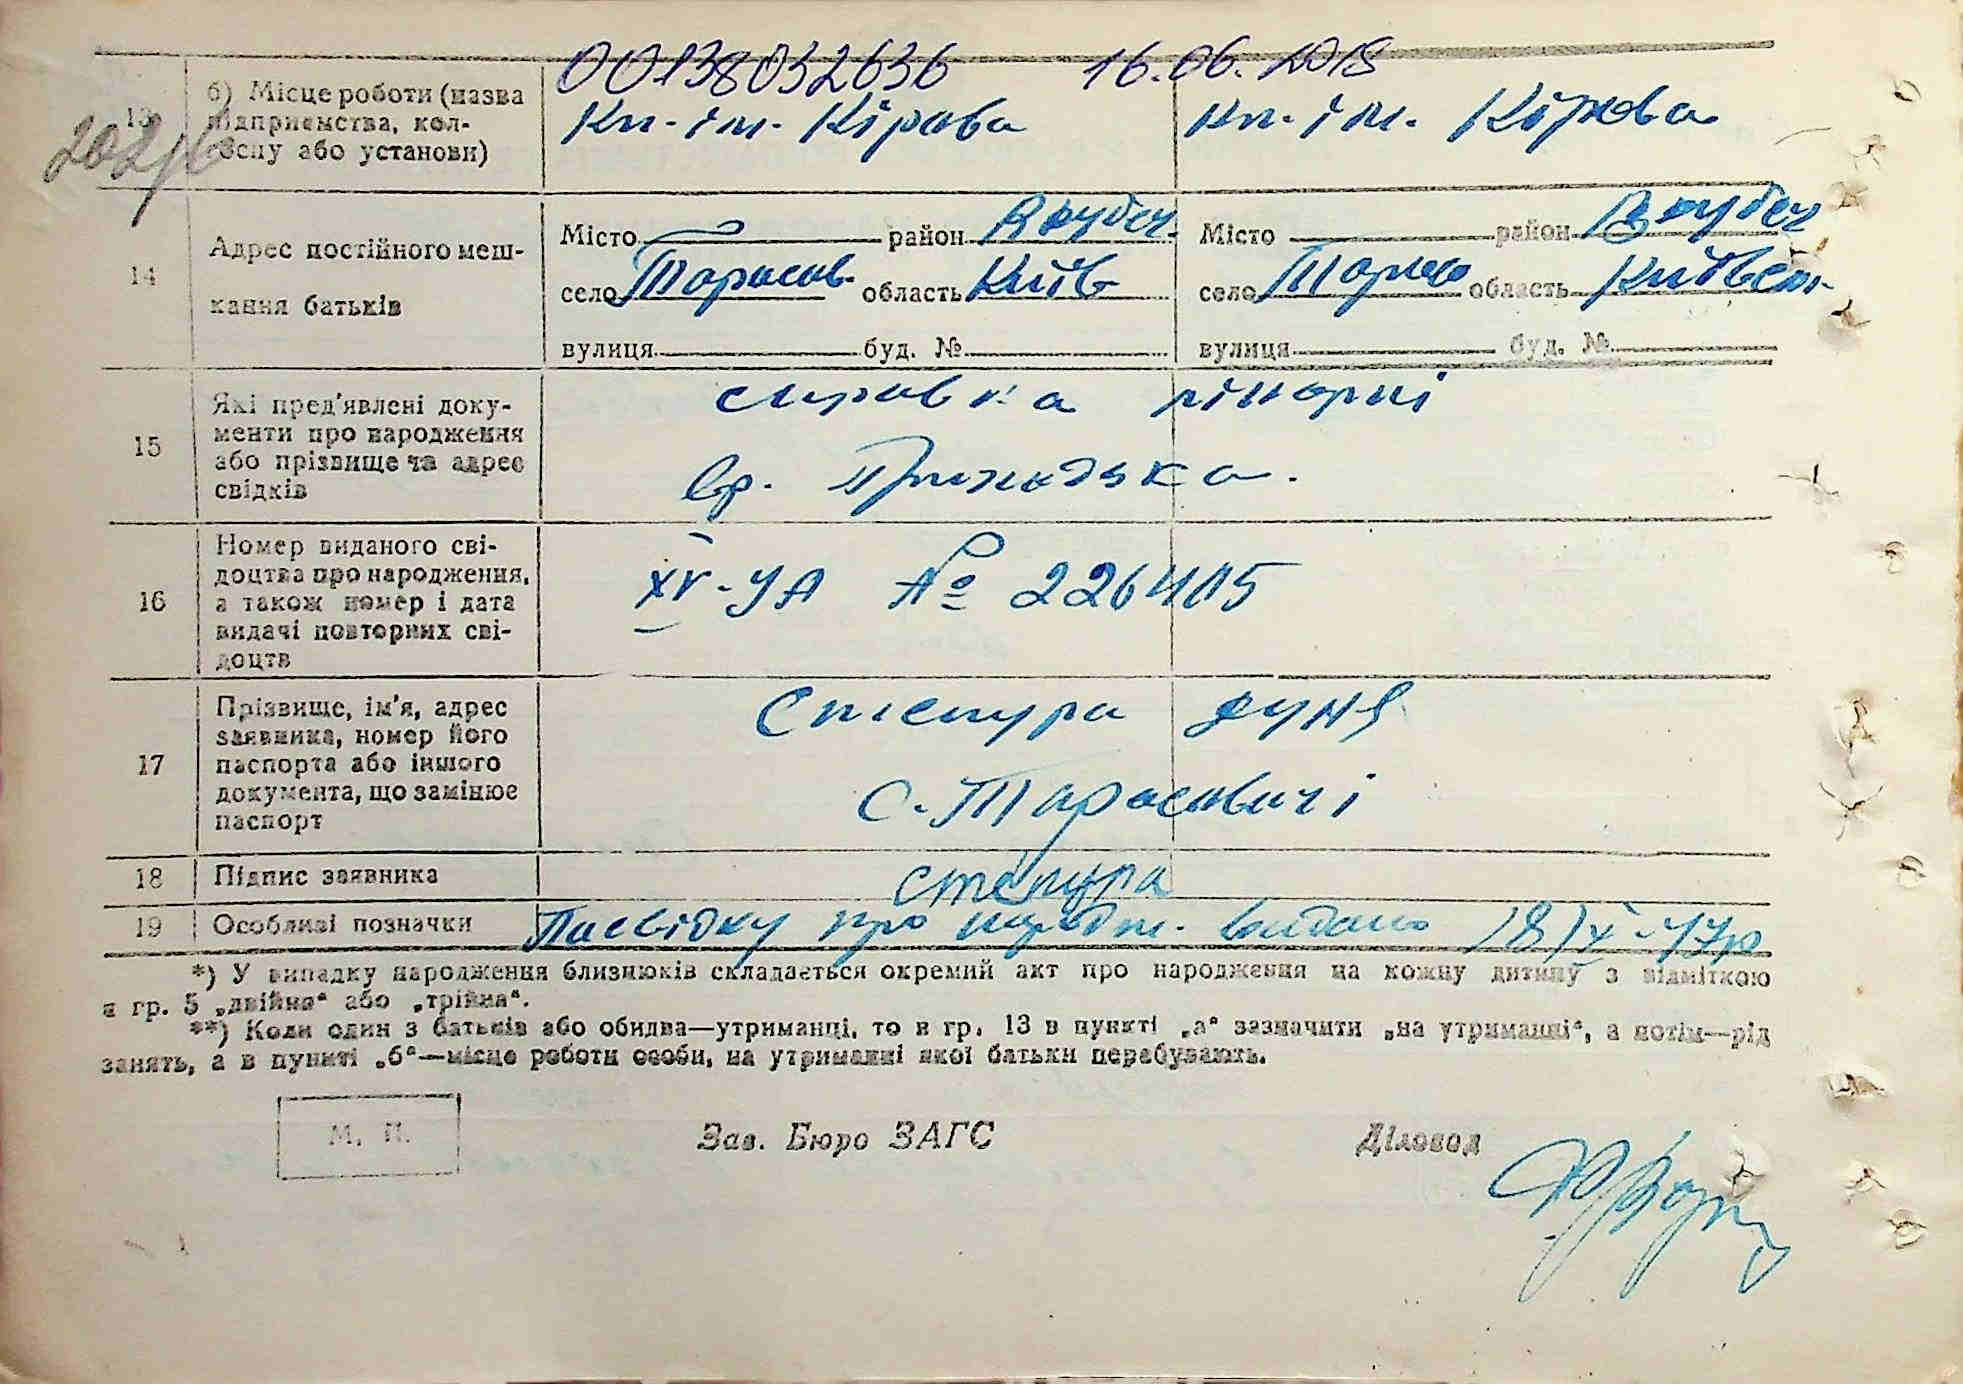 00138032636 16.06.2018
13 б) Місце роботи (назва підприємства, колгоспу або установи) Кп-ім. Кірова Кп-ім. Кірова
202/6
14 Адрес постійного мешкання батьків
Місто район Місто район
село Тарасов. область Київ село область Київськ.
вулиця буд. № вулиця буд. №
15 Які пред'явлені документи про народження або прізвище та адрес свідків
справка лікарні
16 Номер виданого свідоцтва про народження, а також номер і дата видачі повторних свідоцтв
XV-УА № 226405
17 Прізвище, ім'я, адрес заявника, номер його паспорта або іншого документа, що замінює паспорт
Степура Дуня
с. Тарасовичі
18 Підпис заявника Степура
19 Особливі позначки Посвідку про народж. видано 18/ІХ-47р
*) У випадку народження близнюків складається окремий акт про народження на кожну дитину з відміткою
в гр. 5 „двійня“ або „трійня“.
**) Коли один з батьків або обидва—утриманці, то в гр. 13 в пункті „а“ зазначити „на утриманні“, а потім—рід
занять, а в пункті „б“—місце роботи особи, на утриманні якої батьки перебувають.
М. П. Зав. Бюро ЗАГС Діловод